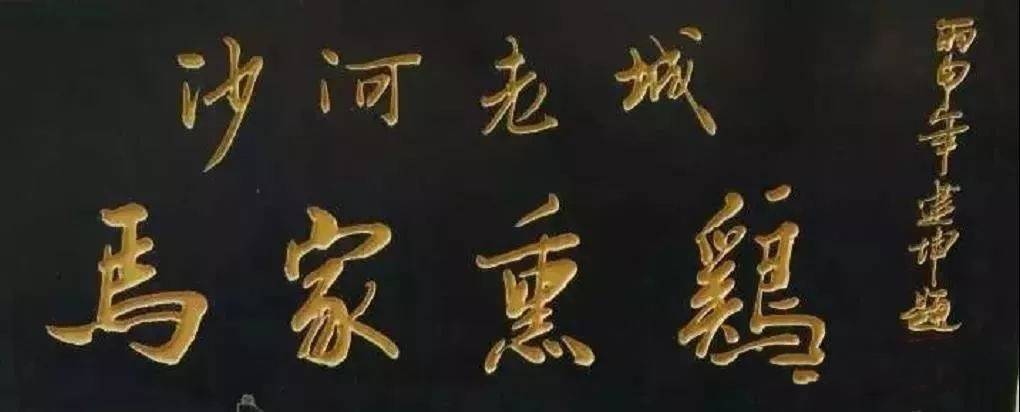 沙河老城
馬家熏鷄
丙申年建坤題